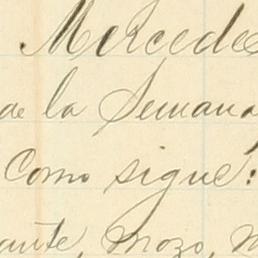 Mercede
de la Semana
Como sigue:
ante, Mozo,